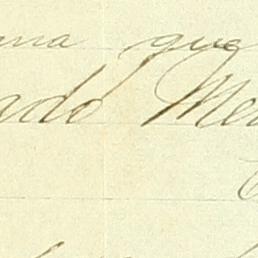 una que
ado Me